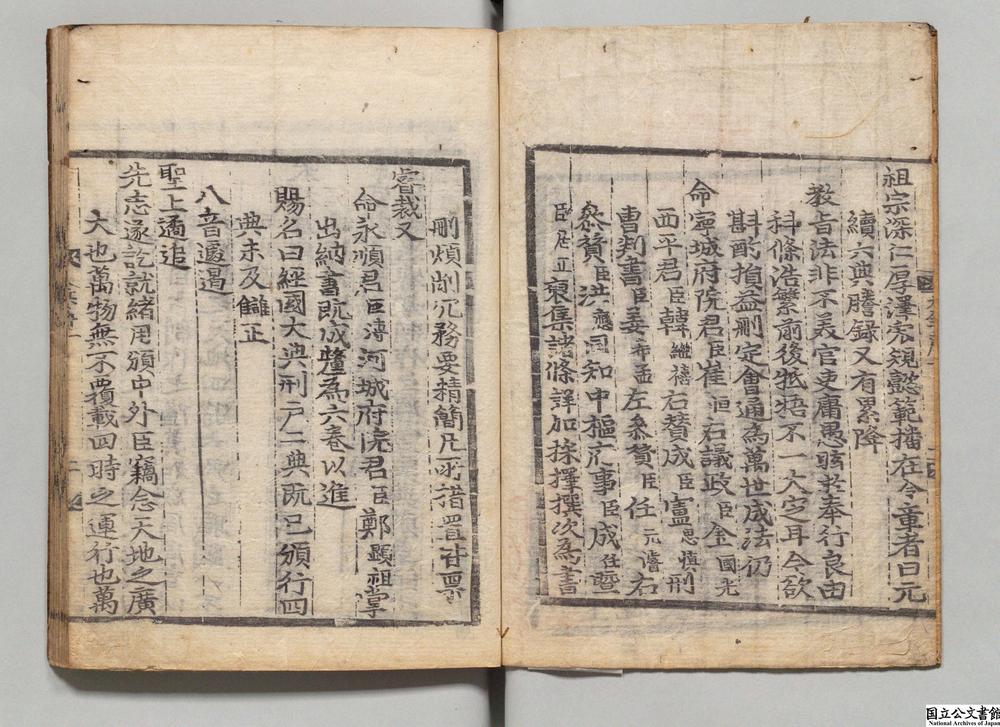 祖宗深仁厚澤宏規懿範播在令章者曰元
續六典謄録又有累降
教旨法非不美官吏庸愚眩於奉行良由
科條浩繁前後牴牾不一大定耳今欲
斟酌損益刪定會通為萬世成法仍
命寧城府院君臣崔恒右議政臣金國光
西平君臣韓繼禧右賛成臣盧思愼刑
曹判書臣姜希孟左叅賛臣任元濬右
叅賛臣洪應同知中樞府事臣成任曁
臣居正裒集諸條詳加採擇撰次為書
刪煩削冗務要精簡凡所措置皆禀
睿裁又
命永順君臣溥河城府院君臣鄭顯祖掌
出納書旣成釐為六卷以進
賜名曰經國大典刑戸二典旣已頒行四
典未及讎正
八音遽遏
聖上遹追
先志遂訖就緒用頒中外臣竊念天地之廣
大也萬物無不覆載四時之運行也萬
国立公文書館
National Archives of Japan